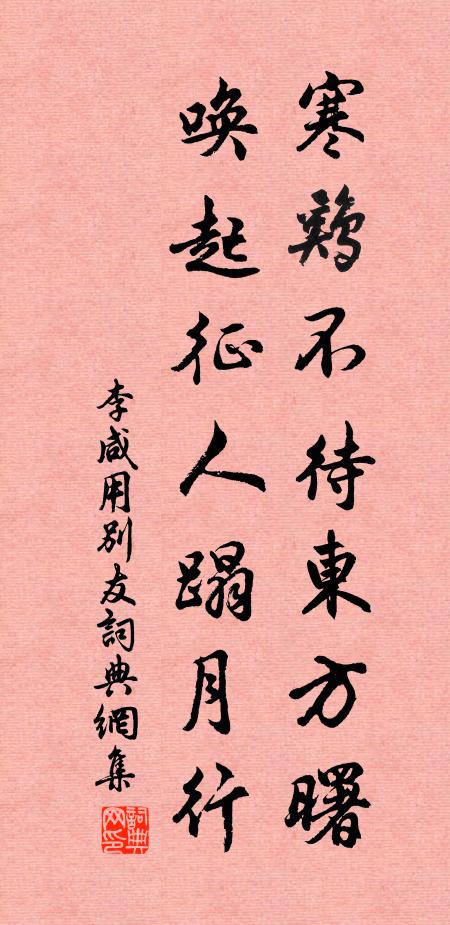 寒鷄不待東方曙
喚起征人蹋月行
李咸用別友詞典網集
詞典網印